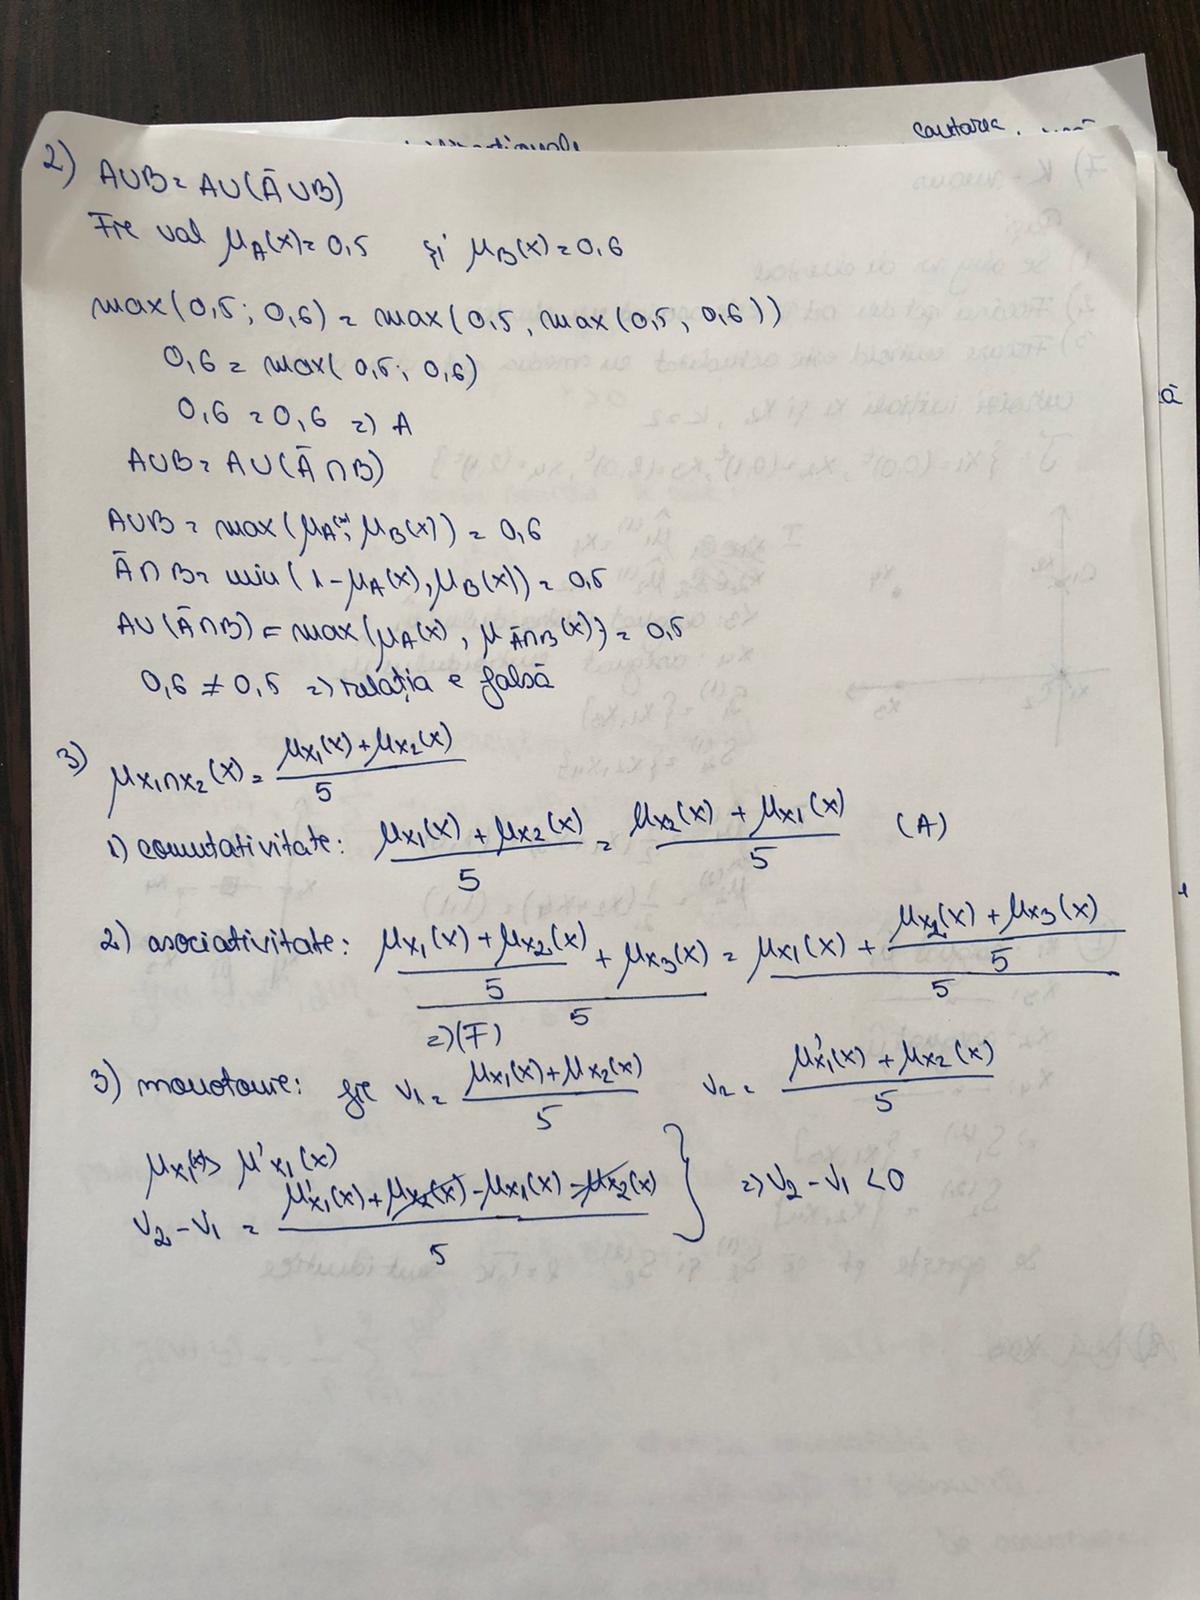 cautarea
2) A∪B = A∪(Ā∪B)
Fie val μA(x) = 0,5 și μB(x) = 0,6
max(0,5; 0,6) = max(0,5, max(0,5, 0,6))
0,6 = max(0,5; 0,6)
0,6 = 0,6 => A
A∪B = A∪(Ā∩B)
A∪B = max(μA(x); μB(x)) = 0,6
Ā∩B = min(1-μA(x), μB(x)) = 0,5
A∪(Ā∩B) = max(μA(x), μĀ∩B(x)) = 0,5
0,6 ≠ 0,5 => relația e falsă
3) μx1∩x2(x) = (μx1(x) + μx2(x)) / 5
1) comutativitate: (μx1(x) + μx2(x)) / 5 = (μx2(x) + μx1(x)) / 5 (A)
2) asociativitate: ((μx1(x) + μx2(x)) / 5 + μx3(x)) / 5 = (μx1(x) + (μx2(x) + μx3(x)) / 5) / 5
=> (F)
3) monotonie: fie v1 = (μx1(x) + μx2(x)) / 5 v2 = (μ'x1(x) + μx2(x)) / 5
μx1(x) > μ'x1(x)
v2 - v1 = (μ'x1(x) + μx2(x) - μx1(x) - μx2(x)) / 5 } => v2 - v1 < 0